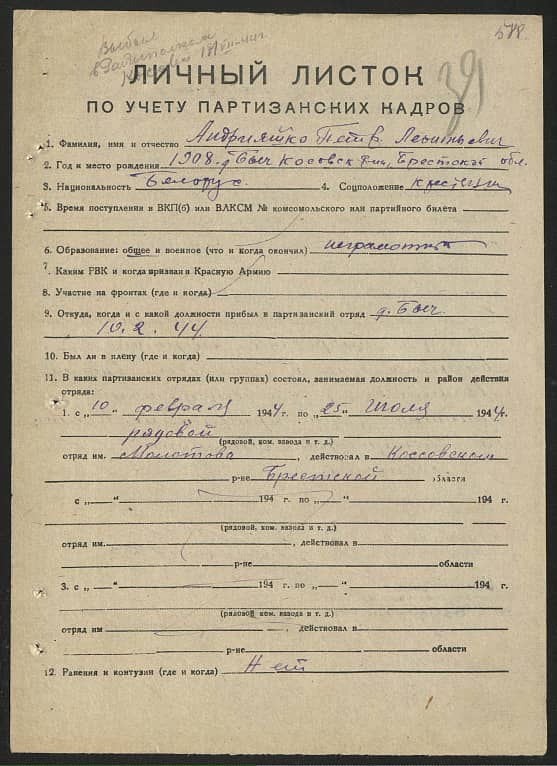 Выбыл
в
18/VII-44 г.
39
ЛИЧНЫЙ ЛИСТОК
ПО УЧЕТУ ПАРТИЗАНСКИХ КАДРОВ
1. Фамилия, имя и отчество Андрияшко Петр Леонтьевич
2. Год и место рождения 1908. д Быч Косовск Брестской обл.
3. Национальность Белорус. 4. Соцположение
5. Время поступления в ВКП(б) или ВЛКСМ № комсомольского или партийного билета
6. Образование: общее и военное (что и когда окончил)
7. Каким РВК и когда призван в Красную Армию
8. Участие на фронтах (где и когда)
9. Откуда, когда и с какой должности прибыл в партизанский отряд д. Быч.
10. 2. 44.
10. Был ли в плену (где и когда)
11. В каких партизанских отрядах (или группах) состоял, занимаемая должность и район действия
отряда:
1. с „10“ февраля 1944 г. по „25“ Июля 1944 г.
рядовой
(рядовой, ком. взвода и т. д.)
отряд им. Молотова, действовал в Коссовском
р-не Брестской области
с „ “ 194 г. по „ “ 194 г.
(рядовой, ком. взвода и т. д.)
отряд им. , действовал в
р-не области
3. с „ “ 194 г. по „ “ 194 г.
(рядовой ком. взвода и т. д.)
отряд им , действовал в
р-не области
12. Ранения и контузии (где и когда) Нет